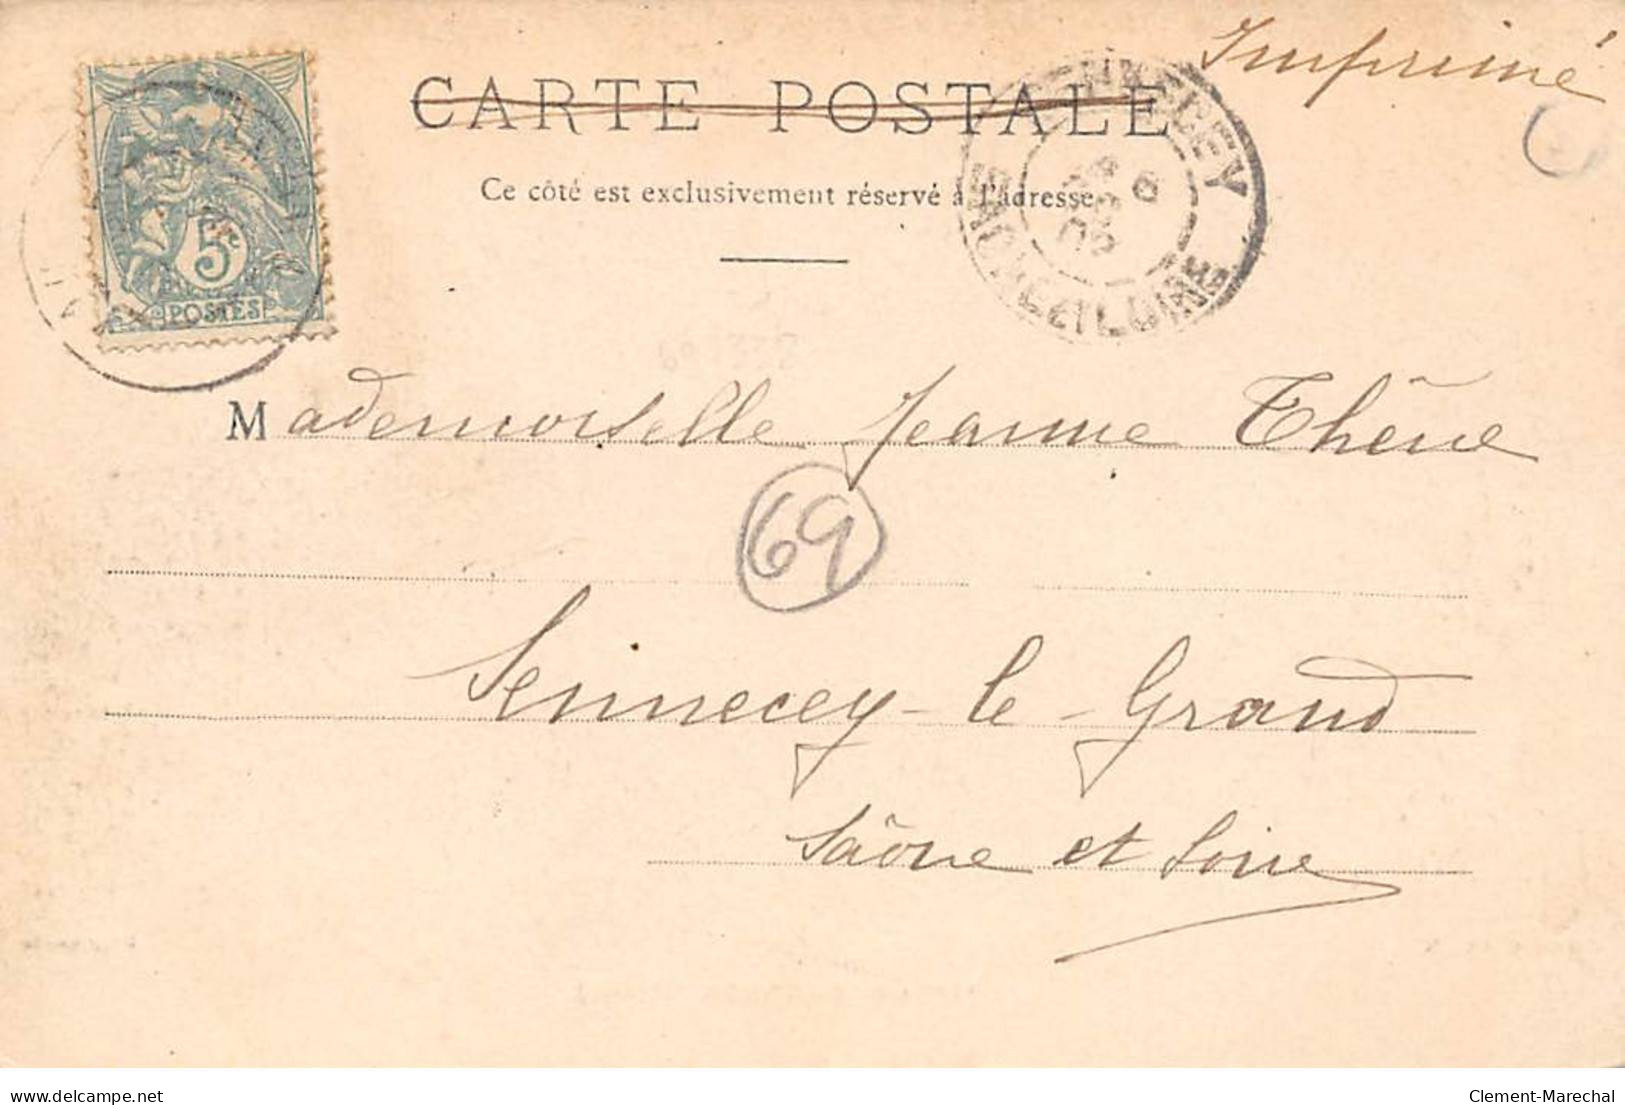 Imprimé
CARTE POSTALE
Ce côté est exclusivement réservé à l'adresse
5c
POSTES
SENNECEY
SAONE ET LOIRE
Mademoiselle Jeanne Thêne
69
Sennecey-le-Grand
Saône et Loire
delcampe.net
Clement-Marechal